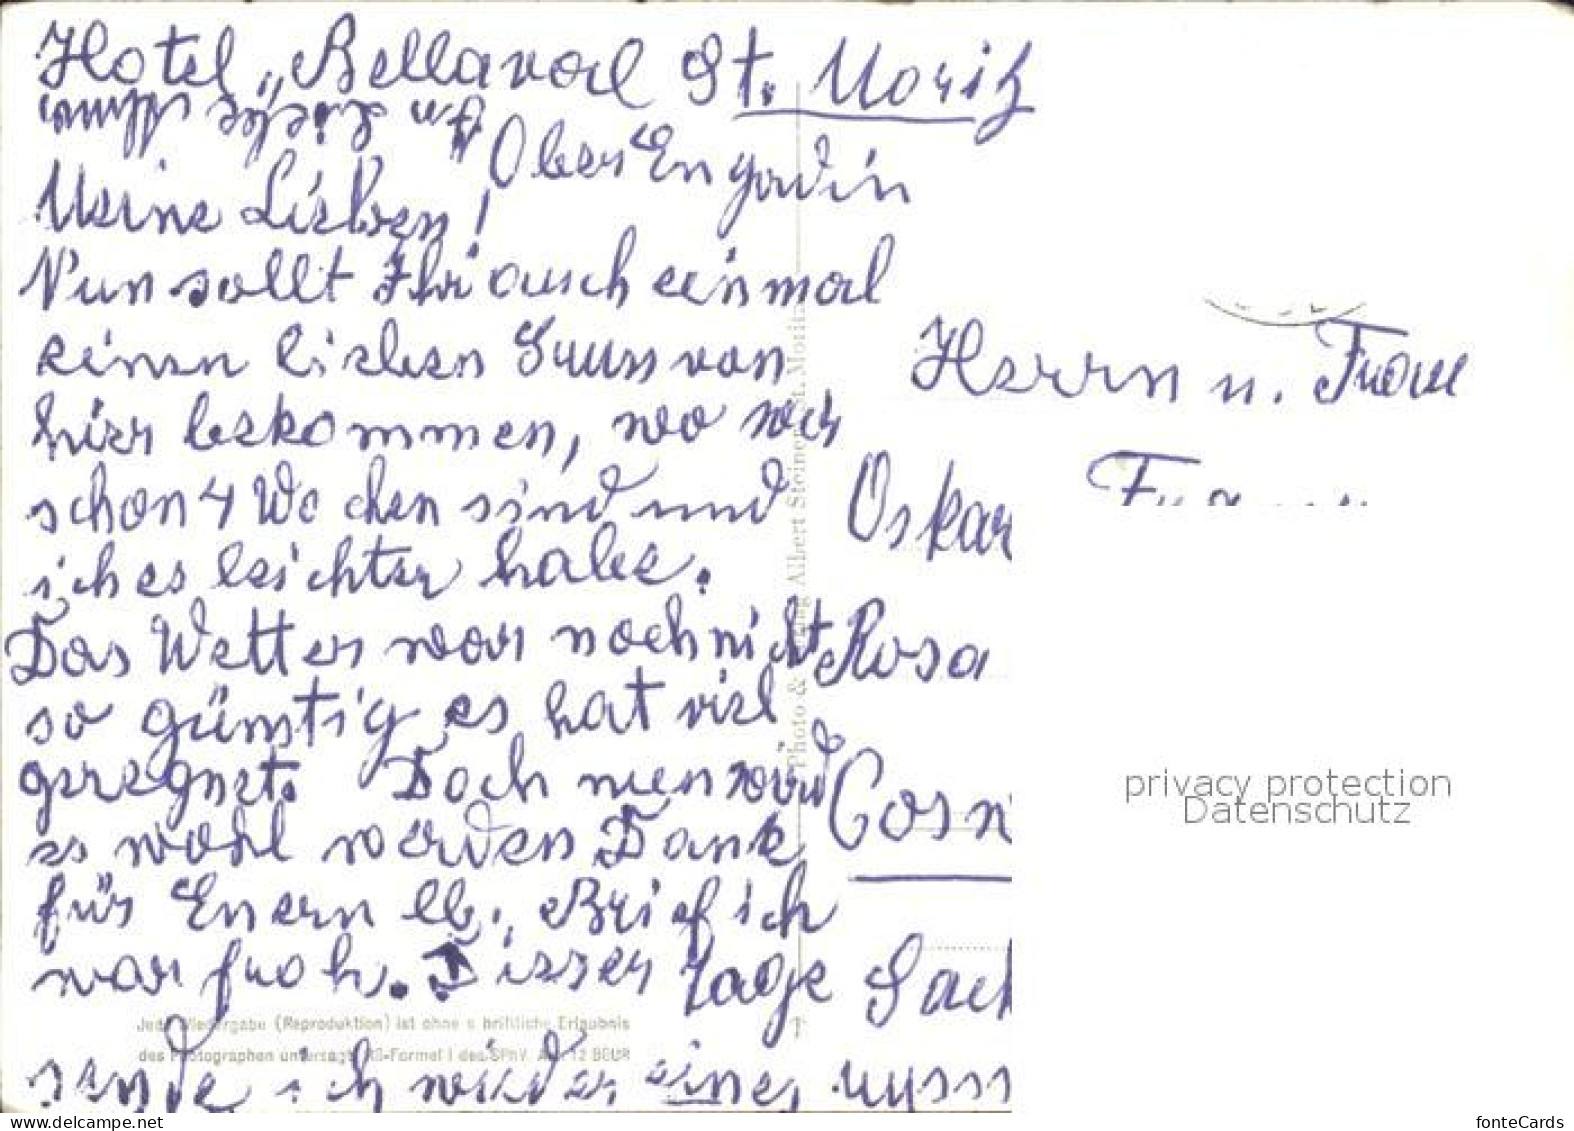 Hotel „Bellaval St. Moritz
Ober Engadin
Meine Lieben!
Nun sollt Ihr auch einmal
einen lieben Gruss von
hier bekommen, wo wir
schon 4 Wochen sind und
ich es leichter habe.
Das Wetter war noch nicht
so günstig es hat viel
geregnet. Doch nun wird
es wohl werden Dank
für Euern lb. Brief ich
war froh. Dieser Tage
sende ich wieder eine
Herrn u. Frau
Oskar
Rosa
Photo & Verlag Albert Steiner, St. Moritz
Jede Wiedergabe (Reproduktion) ist ohne schriftliche Erlaubnis
des Photographen untersagt.
privacy protection
Datenschutz
www.delcampe.net
fonteCards